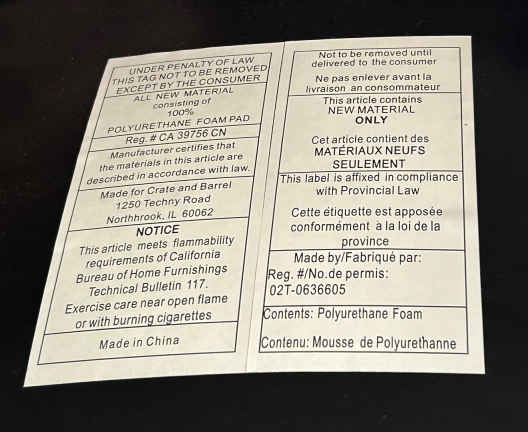 UNDER PENALTY OF LAW
THIS TAG NOT TO BE REMOVED
EXCEPT BY THE CONSUMER
ALL NEW MATERIAL
consisting of
100%
POLYURETHANE FOAM PAD
Reg. # CA 39756 CN
Manufacturer certifies that
the materials in this article are
described in accordance with law.
Made for Crate and Barrel
1250 Techny Road
Northbrook, IL 60062
NOTICE
This article meets flammability
requirements of California
Bureau of Home Furnishings
Technical Bulletin 117.
Exercise care near open flame
or with burning cigarettes
Made in China
Not to be removed until
delivered to the consumer
Ne pas enlever avant la
livraison an consommateur
This article contains
NEW MATERIAL
ONLY
Cet article contient des
MATÉRIAUX NEUFS
SEULEMENT
This label is affixed in compliance
with Provincial Law
Cette étiquette est apposée
conformément à la loi de la
province
Made by/Fabriqué par:
Reg. #/No.de permis:
02T-0636605
Contents: Polyurethane Foam
Contenu: Mousse de Polyurethanne